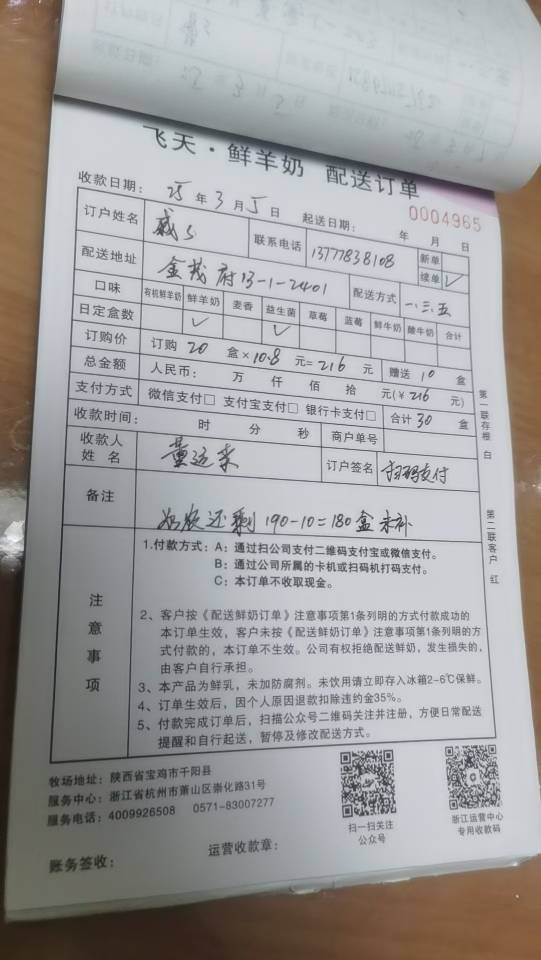 飞天·鲜羊奶 配送订单
收款日期： 25 年 3 月 5 日 起送日期： 年 月 日
0004965
订户姓名 戚 联系电话 13777838108 新单
续单 ✓
配送地址 金茂府13-1-2401 配送方式 一.三.五
口味 有机鲜羊奶 鲜羊奶 麦香 益生菌 草莓 蓝莓 鲜牛奶 酸牛奶 合计
日定盒数 ✓ ✓
订购价 订购 20 盒×10.8 元=216 元 赠送 10 盒
总金额 人民币： 万 仟 佰 拾 元(¥216 元)
支付方式 微信支付□ 支付宝支付□ 银行卡支付□ 合计 30 盒
收款时间： 时 分 秒 商户单号
收款人姓名 董运来 订户签名 扫码支付
备注 奶农还剩190-10=180盒未补
注意事项
1.付款方式：A：通过扫公司支付二维码支付宝或微信支付。
B：通过公司所属的卡机或扫码机打码支付。
C：本订单不收取现金。
2、客户按《配送鲜奶订单》注意事项第1条列明的方式付款成功的
本订单生效，客户未按《配送鲜奶订单》注意事项第1条列明的方
式付款的，本订单不生效。公司有权拒绝配送鲜奶，发生损失的，
由客户自行承担。
3、本产品为鲜乳，未加防腐剂。未饮用请立即存入冰箱2-6℃保鲜。
4、订单生效后，因个人原因退款扣除违约金35%。
5、付款完成订单后，扫描公众号二维码关注并注册，方便日常配送
提醒和自行起送，暂停及修改配送方式。
第一联存根 白
第二联客户 红
牧场地址：陕西省宝鸡市千阳县
服务中心：浙江省杭州市萧山区崇化路31号
服务电话：4009926508 0571-83007277
扫一扫关注
公众号
浙江运营中心
专用收款码
账务签收：
运营收款章：